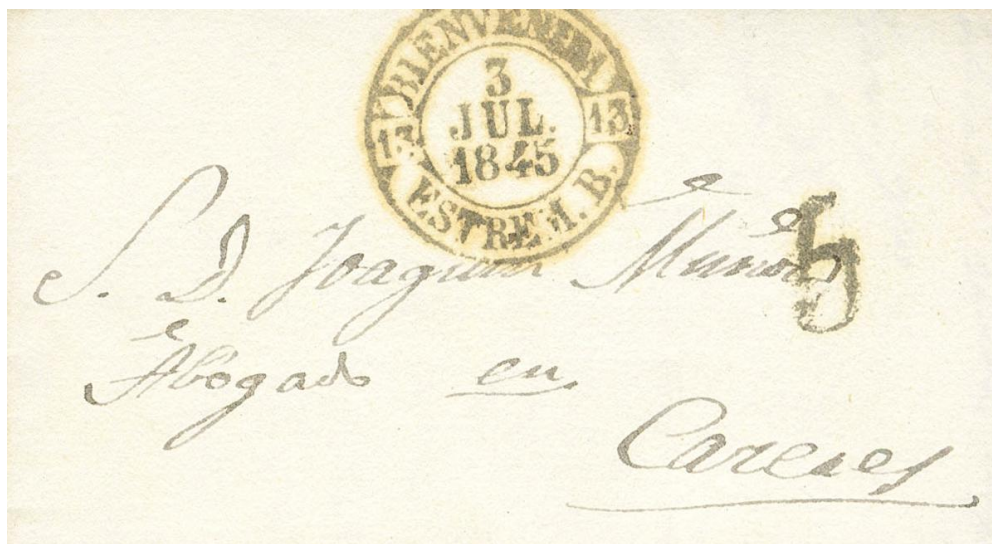 BIENVENIDA
13 13
3
JUL.
1845
ESTREM. B.
S. D. Joaquin Muñoz
Abogado en
Caceres